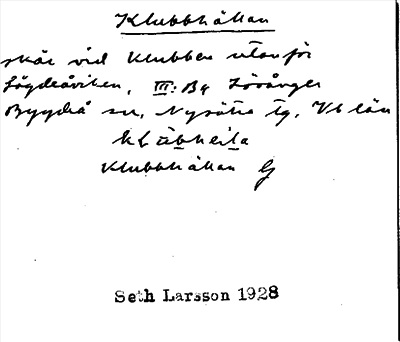 Klubbhällan
skär vid Klubben utanför
Lögdeåviken, III: B4 Lövånger
Bygdeå sn, Nysätra tg, Vb län
Klubbhällan G
Seth Larsson 1928